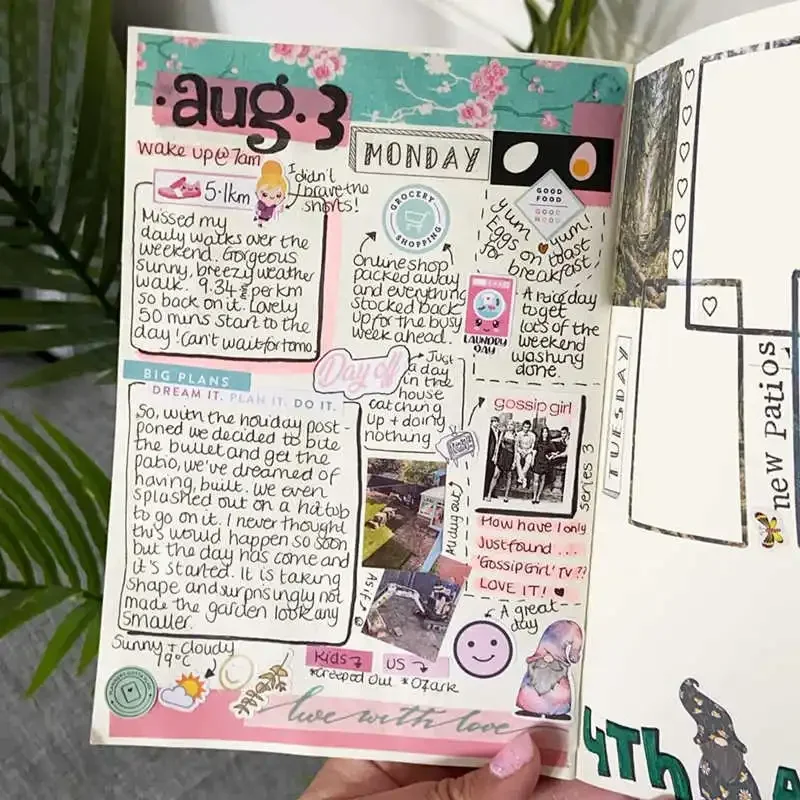 ·aug·3
MONDAY
wake up @ 7am
5·1km
I didn't
brave the
shorts!
Missed my
daily walks over the
weekend. Gorgeous
sunny, breezy weather
walk. 9.34 per km
so back on it. Lovely
50 mins start to the
day! Can't wait for tomo
GROCERY
SHOPPING
Online shop
packed away
and everything
stocked back
up for the busy
week ahead.
GOOD
FOOD
GOOD
MOOD
yum, yum!
Eggs on toast
for breakfast
LAUNDRY
DAY
A nice day
to get
lots of the
weekend
washing
done.
Day off
Just
a day
in the
house
catching
up + doing
nothing
BIG PLANS
DREAM IT. PLAN IT. DO IT.
So, with the holiday post-
poned we decided to bite
the bullet and get the
patio, we've dreamed of
having, built. We even
splashed out on a hot tub
to go on it. I never thought
this would happen so soon
but the day has come and
it's started. It is taking
shape and surprisingly not
made the garden look any
smaller.
All dug out
AS if!
gossip girl
series 3
How have I only
Just found ...
'Gossip Girl' TV??
LOVE IT!
A great
day
Sunny + cloudy
19°C
Kids
*Creeped Out
US
*Ozark
live with love
TUESDAY
new Patios
4TH A